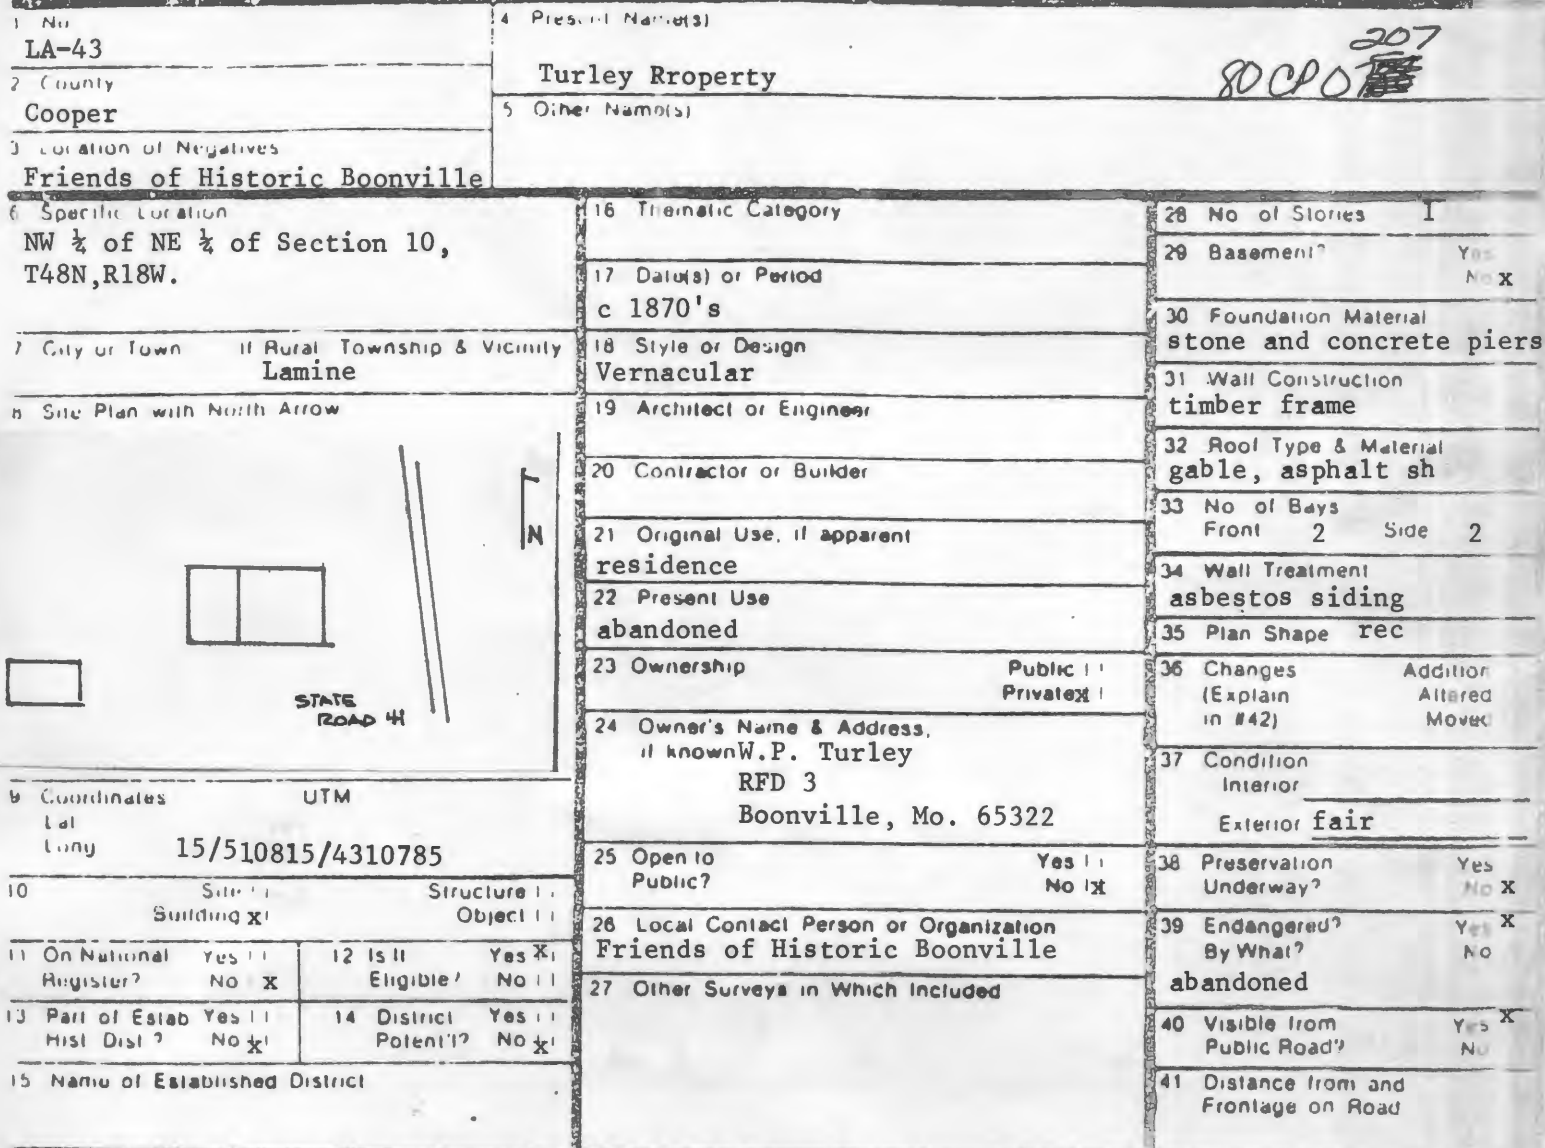 1 No
LA-43
2 County
Cooper
3 Location of Negatives
Friends of Historic Boonville
4 Present Name(s)
Turley Rroperty
207
80 CP 0
5 Other Name(s)
6 Specific Location
NW ¼ of NE ¼ of Section 10,
T48N,R18W.
7 City or Town If Rural Township & Vicinity
Lamine
8 Site Plan with North Arrow
N
STATE
ROAD 41
9 Coordinates UTM
Lat
Long 15/510815/4310785
10 Site Structure
Building x Object
11 On National Yes
Register? No x
12 Is It Yes x
Eligible? No
13 Part of Estab Yes
Hist Dist? No x
14 District Yes
Potent'l? No x
15 Name of Established District
16 Thematic Category
17 Date(s) or Period
c 1870's
18 Style or Design
Vernacular
19 Architect or Engineer
20 Contractor or Builder
21 Original Use, if apparent
residence
22 Present Use
abandoned
23 Ownership Public
Private x
24 Owner's Name & Address,
if known W.P. Turley
RFD 3
Boonville, Mo. 65322
25 Open to Yes
Public? No x
26 Local Contact Person or Organization
Friends of Historic Boonville
27 Other Surveys in Which Included
28 No of Stories 1
29 Basement? Yes
No x
30 Foundation Material
stone and concrete piers
31 Wall Construction
timber frame
32 Roof Type & Material
gable, asphalt sh
33 No of Bays
Front 2 Side 2
34 Wall Treatment
asbestos siding
35 Plan Shape rec
36 Changes Addition
(Explain Altered
in #42) Moved
37 Condition
Interior
Exterior fair
38 Preservation Yes
Underway? No x
39 Endangered? Yes x
By What? No
abandoned
40 Visible from Yes x
Public Road? No
41 Distance from and
Frontage on Road